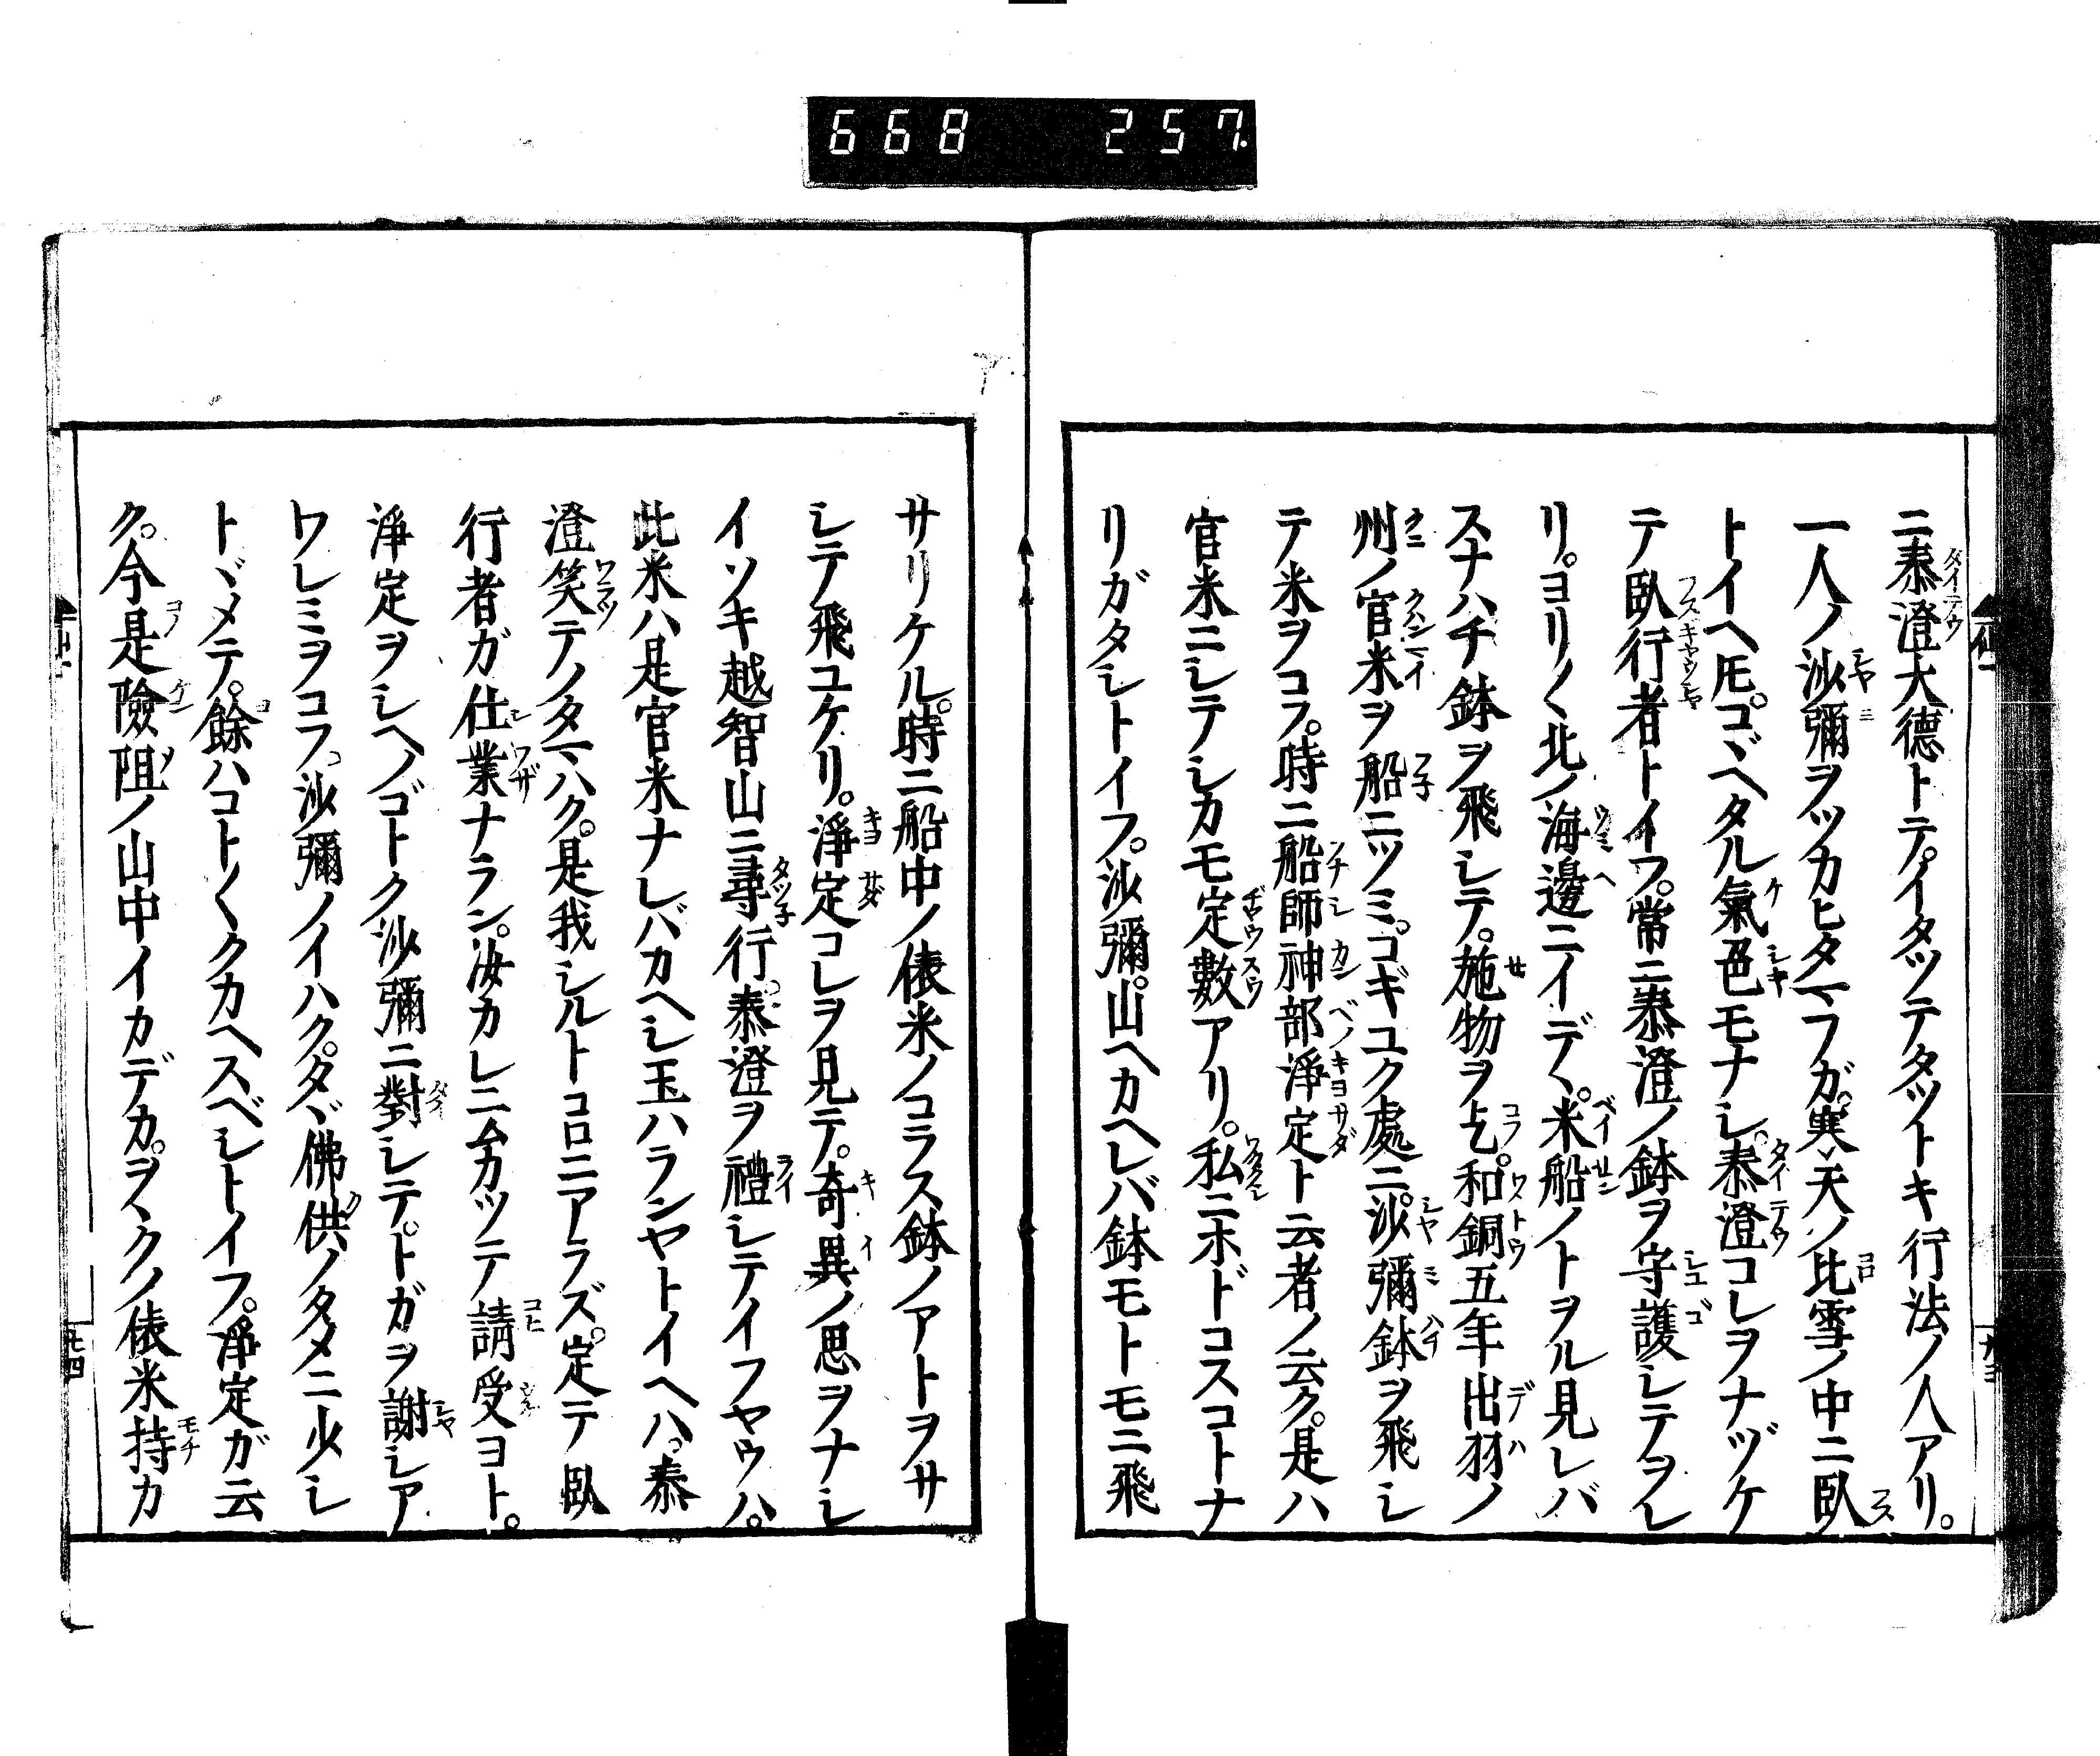 668 257.
ニ泰澄大德トテ。イタツテタツトキ行法ノ人アリ。
一人ノ沙彌ヲツカヒタマフガ。寒天ノ比雪ノ中ニ臥
トイヘ𪜈。コヾヘタル氣色モナシ。泰澄コレヲナヅケ
テ臥行者トイフ。常ニ泰澄ノ鉢ヲ守護シテヲレ
リ。ヨリ〱北ノ海邊ニイデヽ。米船ノトヲル見レバ
スナハチ鉢ヲ飛シテ。施物ヲ乞。和銅五年出羽ノ
州ノ官米ヲ船ニツミ。コギユク處ニ。沙彌鉢ヲ飛シ
テ米ヲコフ。時ニ船師神部淨定ト云者ノ云ク。是ハ
官米ニシテシカモ定數アリ。私ニホドコスコトナ
リガタシトイフ。沙彌。山ヘカヘレバ鉢モトモニ飛
サリケル。時ニ船中ノ俵米ノコラス鉢ノアトヲサ
シテ飛ユケリ。淨定コレヲ見テ。奇異ノ思ヲナシ
イソキ越智山ニ尋行。泰澄ヲ禮シテイフヤウハ。
此米ハ是官米ナレバカヘシ玉ハランヤトイヘハ。泰
澄笑テノタマハク。是我シルトコロニアラズ。定テ臥
行者ガ仕業ナラン。汝カレニムカツテ請受ヨト。
淨定ヲシヘノゴトク沙彌ニ對シテ。トガヲ謝シア
ワレミヲコフ。沙彌ノイハク。タヾ佛供ノタメニ少シ
トヾメテ。餘ハコト〱クカヘスベシトイフ。淨定ガ云
ク。今是險阻ノ山中イカデカ。ヲヽクノ俵米持カ